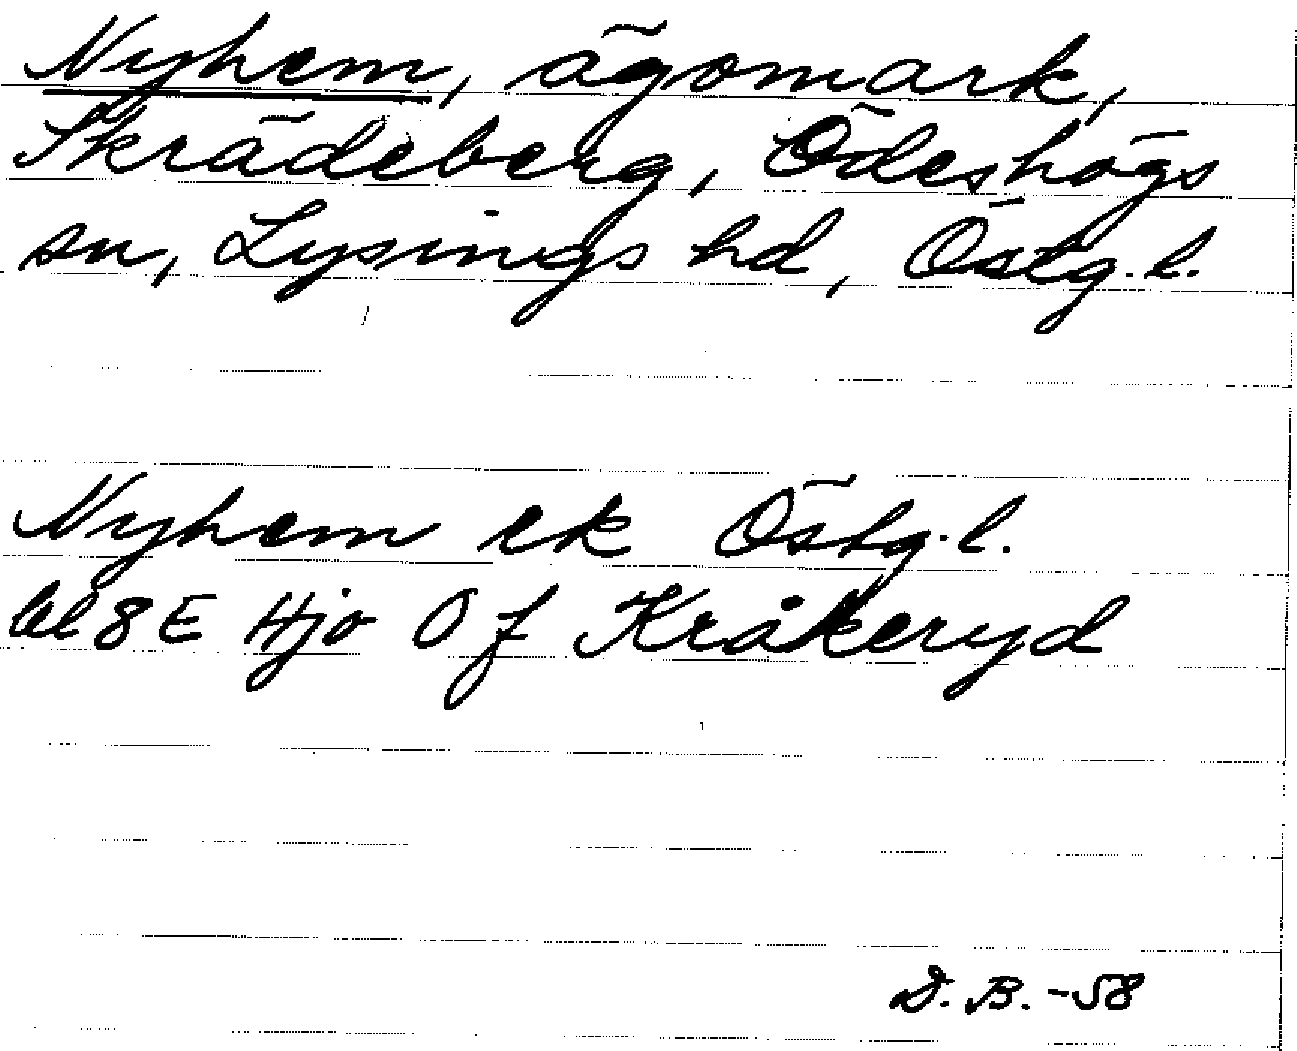 Nyhem, ägomark,
Skrädeberg, Ödeshögs
sn, Lysings hd, Östg. l.
Nyhem ek Östg. l.
bl 8 E Hjo 0 f Kråkeryd
D. B. -58